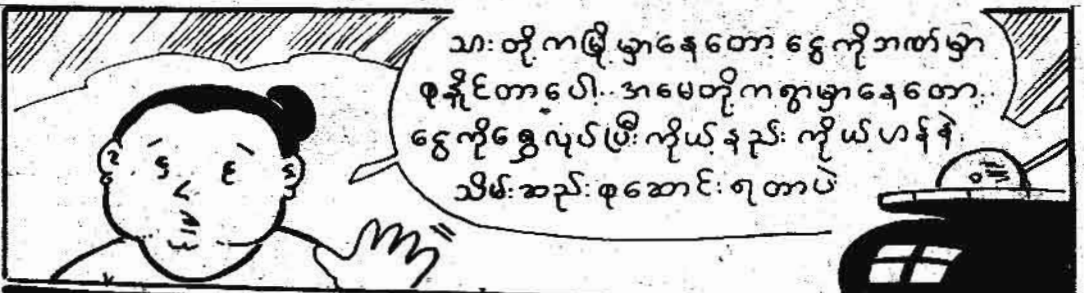 သားတို့ကမြို့မှာနေတော့ ငွေကိုဘဏ်မှာ
စုနိုင်တာပေါ့.. အမေတို့ကရွာမှာနေတော့..
ငွေကိုရွှေလုပ်ပြီးကိုယ့်နည်းကိုယ့်ဟန်နဲ့
သိမ်းဆည်းစုဆောင်းရတာပဲ